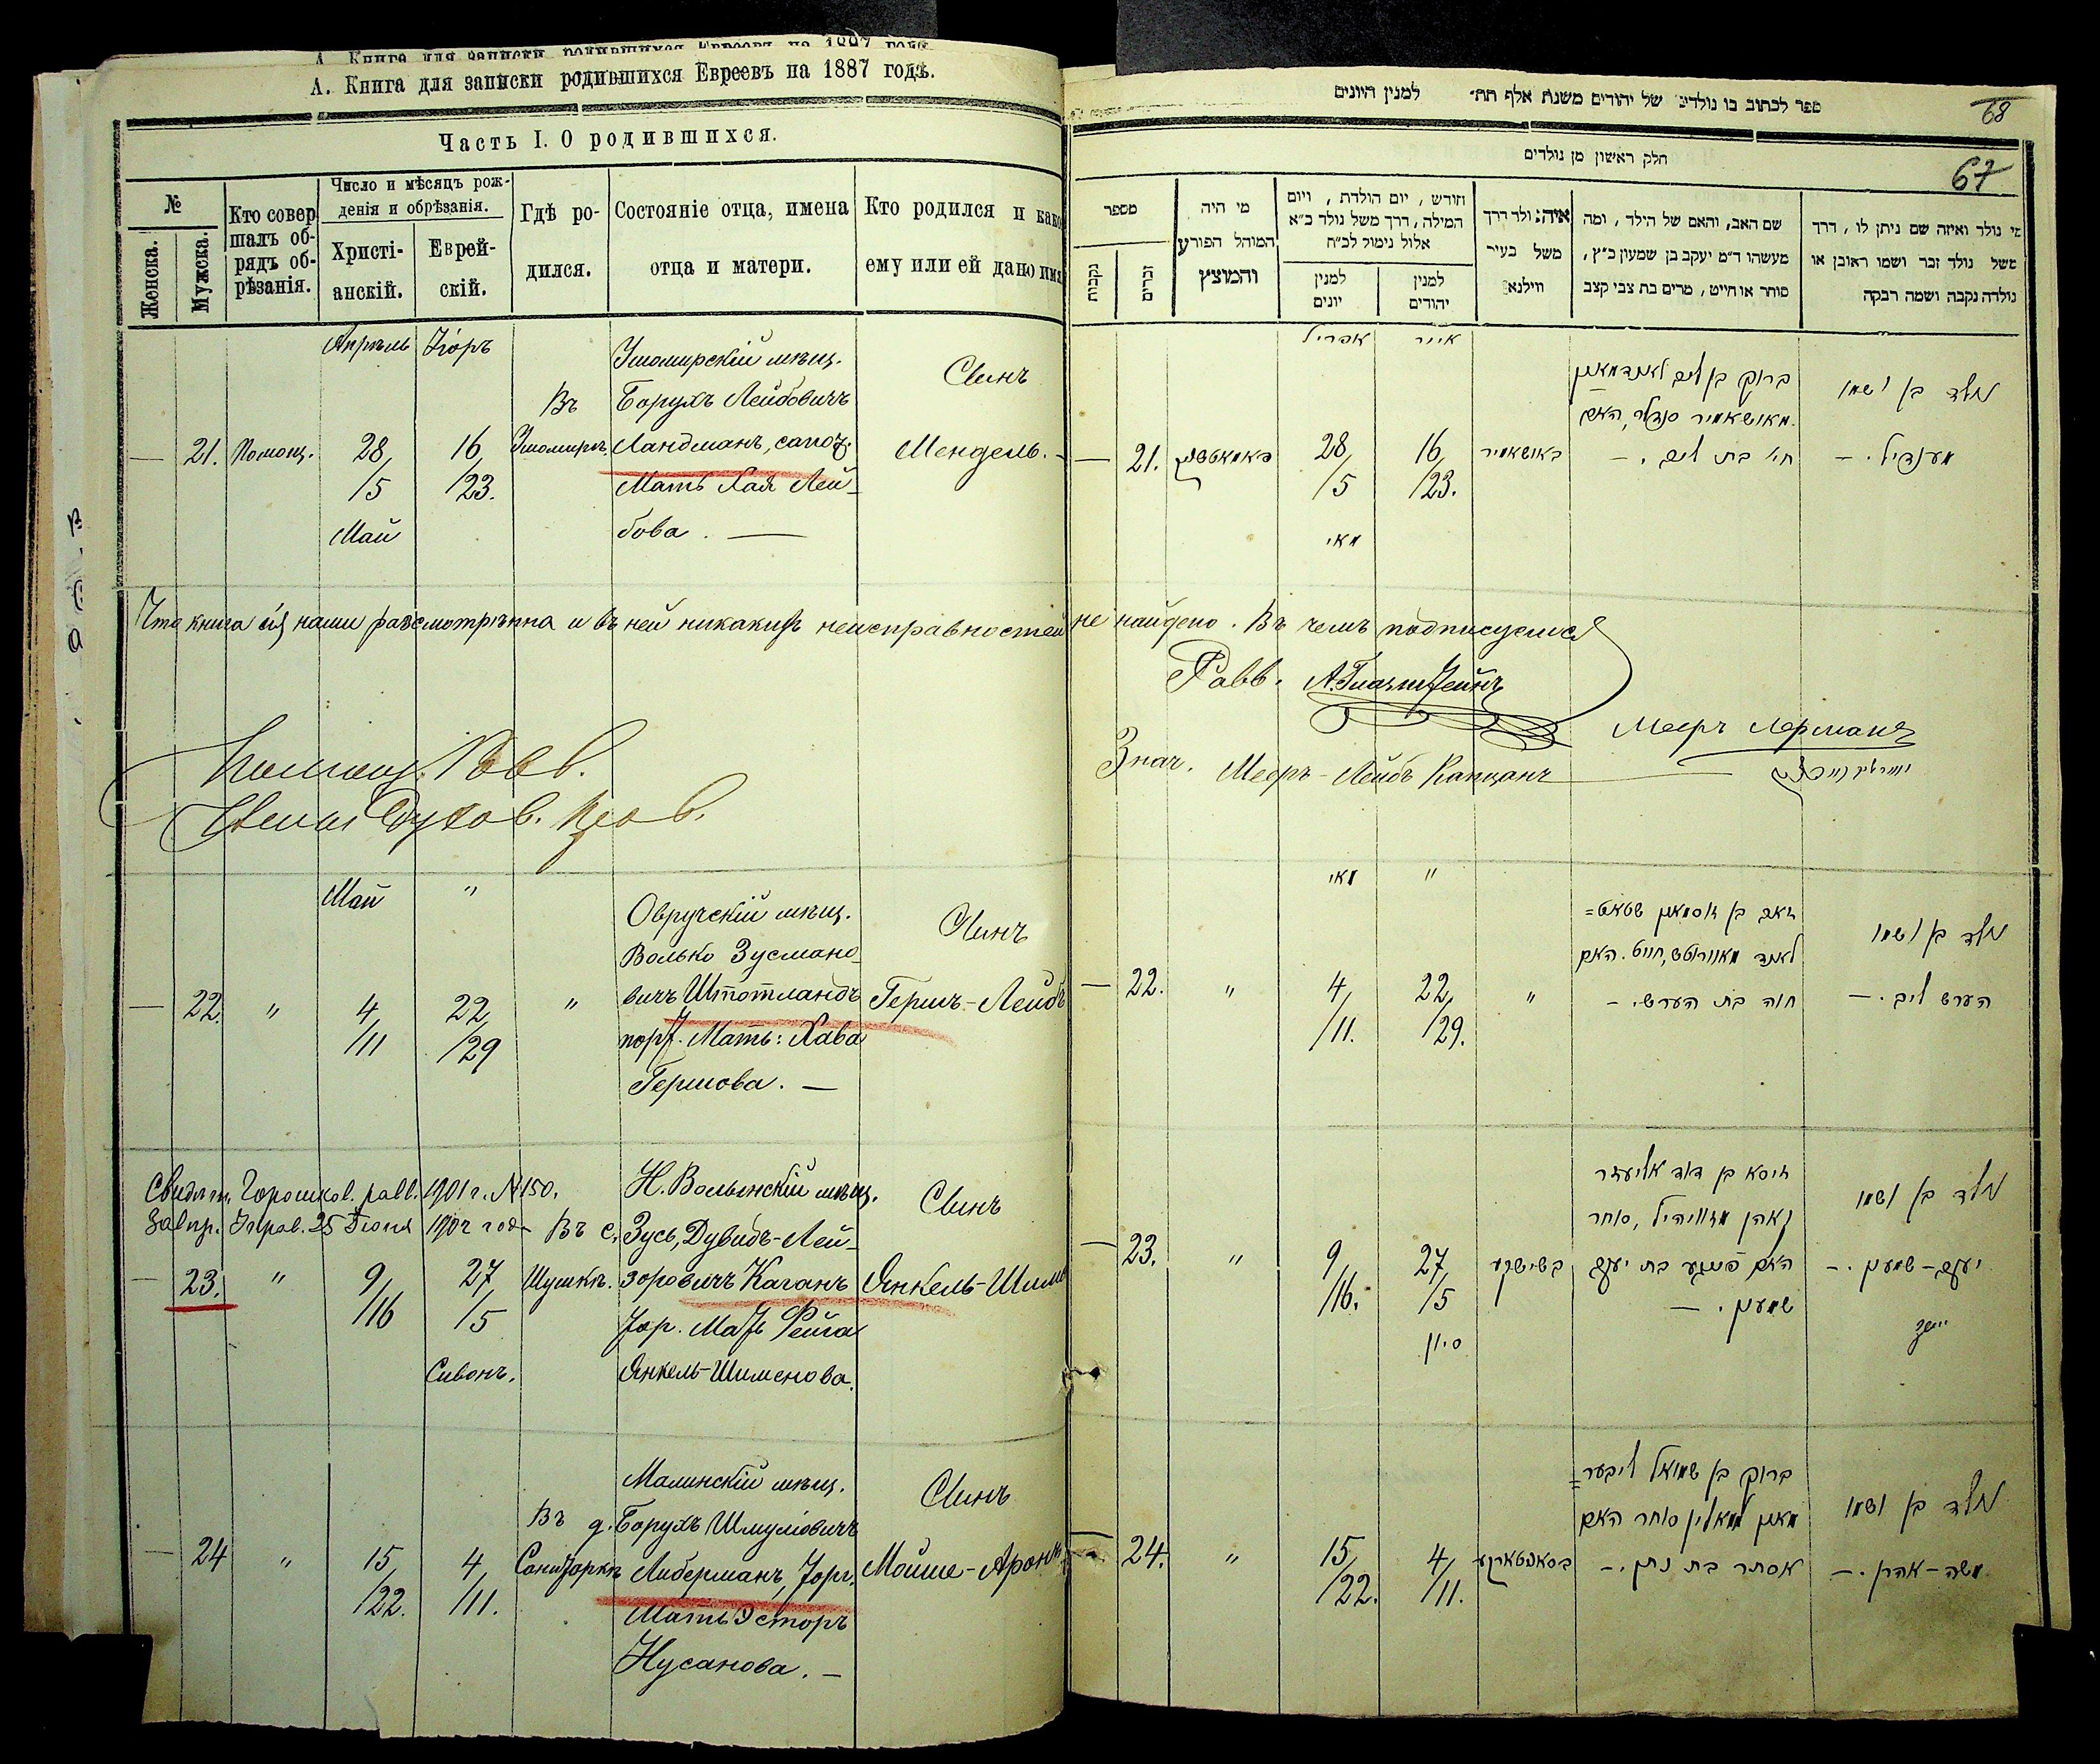 А. Книга для записки родившихся Евреевъ на 1887 годъ.
Часть I. О родившихся.
№
Женска.
Мужска.
Кто совер
шалъ об-
рядъ об-
рѣзанія.
Число и мѣсяцъ рож-
денія и обрѣзанія.
Христі-
анскій.
Еврей-
скій.
Гдѣ ро-
дился.
Состояніе отца, имена
отца и матери.
Кто родился и како
ему или ей дано имя
Апрѣль Іюръ
— 21. Помощ.
28/5
Май
16/23.
Въ
Житомирѣ.
Житомирскій мѣщ.
Борухъ Лейбовичъ
Ландманъ, сапож.
Мать Хая Лей-
бова. —
Сынъ
Мендель. —
Что книга сія нами разсмотрѣнна и въ ней никакихъ неисправностей не найдено. Въ чемъ подписуемся
Равв.
Мееръ Лерманъ
Помощ. Равв.
Члены Духов. Прав.
Знач. Мееръ-Лейбъ Капцанъ
Май "
— 22. "
4/11
22/29
"
Овручскій мѣщ.
Волько Зусмано-
вичъ Штотландъ
порт. Мать: Хава
Гершова. —
Сынъ
Гершъ-Лейбъ
Свидѣт. Горошков. равв. 1901 г. № 150.
Исправ. 25 Іюня 1902 года
— 23. "
9/16
27/5
Сивонъ.
Въ с.
Шушкѣ.
Н. Волынскій мѣщ.
Зусь, Дувидъ-Лей-
зоровичъ Каганъ
тор. Мать Фейга
Янкель-Шименова.
Сынъ
Янкель-Шиме
— 24 "
15/22.
4/11.
Въ д.
Малинскій мѣщ.
Борухъ Шмуліовичъ
Либерманъ, торг.
Мать Эстеръ
Нусанова. —
Сынъ
Мойше-Аронъ
ספר לכתוב בו נולדים של יהודים משנת אלף תת״ למנין היונים
68
67
חלק ראשון מן נולדים
מי נולד ואיזה שם ניתן לו, דרך
משל נולד זכר ושמו ראובן או
נולדה נקבה ושמה רבקה
שם האב, והאם של הילד, ומה
מעשהו ד״מ יעקב בן שמעון כ״ץ,
סוחר או חייט, מרים בת צבי קצב
איה נולד דרך
משל בעיר
ווילנא
חודש, יום הולדת, ויום
המילה, דרך משל נולד כ״א
אלול נימול לכ״ח
למנין
יהודים
למנין
יונים
מי היה
המוהל הפורע
והמוצץ
מספר
זכרים
נקבות
אפריל אייר
— 21.
28/5
מאי
16/23.
ברוך בן ליב לאנדמאן
סנדלר, האם
חי׳ בת ליב. —
נולד בן ושמו
מענדיל. —
מאי "
— 22. "
4/11.
22/29.
"
זאב בן זוסמאן שטאט=
לאנד מאוורוטש, חייט. האם
חוה בת הערש. —
נולד בן ושמו
הערש ליב. —
— 23. "
9/16.
27/5
סיון
בשישקע
זיסא בן דוד אליעזר
כאהן מזוויהיל, סוחר
האם פייגע בת יעקב
שמעון. —
נולד בן ושמו
יעקב-שמעון. —
— 24. "
15/22.
4/11.
ברוך בן שמואל ליבער=
מאן מאלין סוחר האם
אסתר בת נתן. —
נולד בן ושמו
משה-אהרן. —